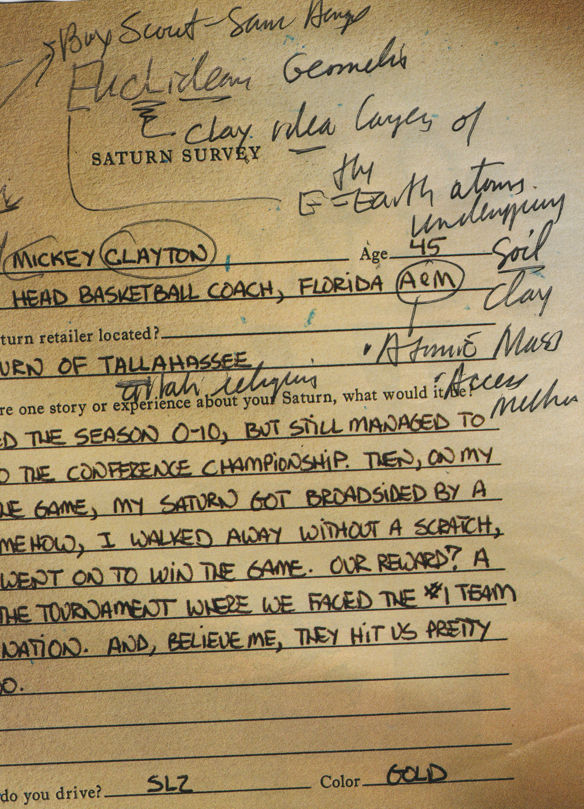 Boy Scout - Sam
Euclidean Geometric
Clay idea layers of
SATURN SURVEY
the
E = Earth atoms.
underlying
MICKEY CLAYTON Age 45 Soil
HEAD BASKETBALL COACH, FLORIDA A&M Clay
turn retailer located?
URN OF TALLAHASSEE • Atomic Mass
religions
re one story or experience about your Saturn, what would it be? Access
ED THE SEASON 0-10, BUT STILL MANAGED TO
O THE CONFERENCE CHAMPIONSHIP. THEN, ON MY
HE GAME, MY SATURN GOT BROADSIDED BY A
MEHOW, I WALKED AWAY WITHOUT A SCRATCH,
WENT ON TO WIN THE GAME. OUR REWARD? A
THE TOURNAMENT WHERE WE FACED THE #1 TEAM
NATION. AND, BELIEVE ME, THEY HIT US PRETTY
O.
do you drive? SL2 Color GOLD